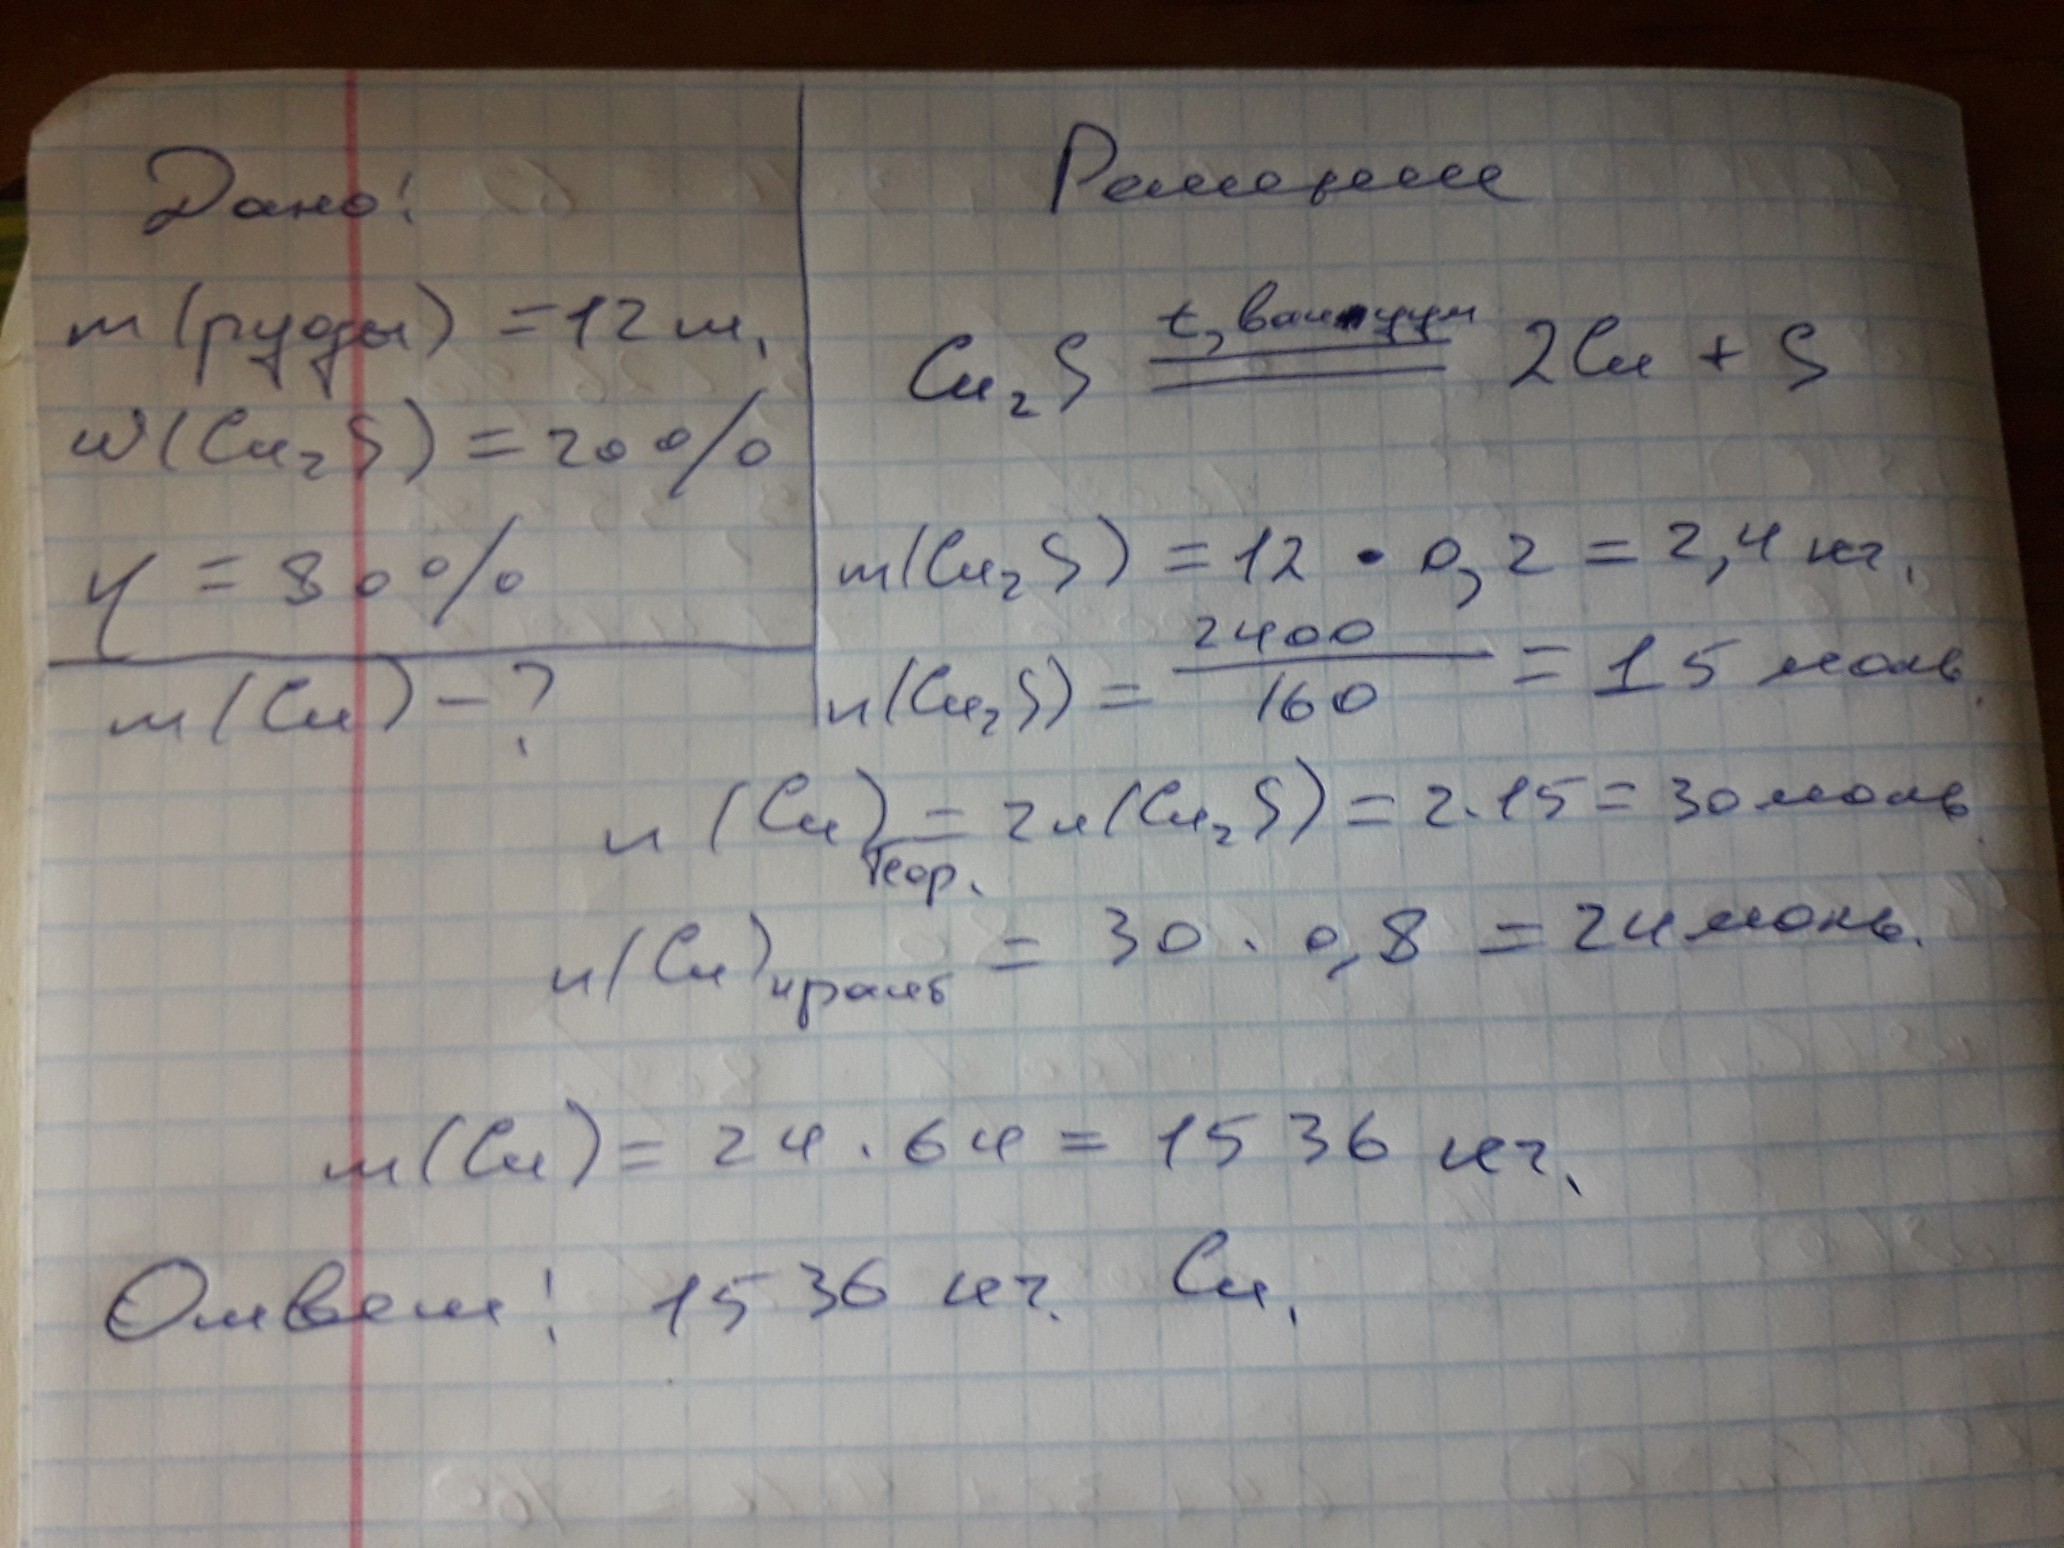 Дано:
m(руды) = 12 т.
w(Cu₂S) = 20%
η = 80%
m(Cu) - ?
Решение
Cu₂S t, вакуум 2Cu + S
m(Cu₂S) = 12 · 0,2 = 2,4 кг.
n(Cu₂S) = 2400/160 = 15 моль.
n(Cu)теор. = 2n(Cu₂S) = 2·15 = 30 моль.
n(Cu)практ = 30 · 0,8 = 24 моль.
m(Cu) = 24 · 64 = 1536 кг.
Ответ: 1536 кг. Cu.